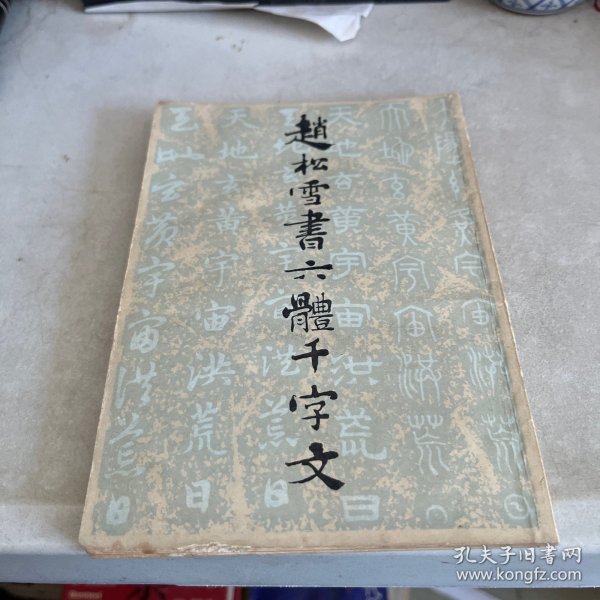 趙松雪書六體千字文
天地玄黃宇宙洪荒日
天地玄黃宇宙洪荒日
天地玄黃宇宙洪荒日
天地玄黃宇宙洪荒日
孔夫子旧书网
www.kongfz.com